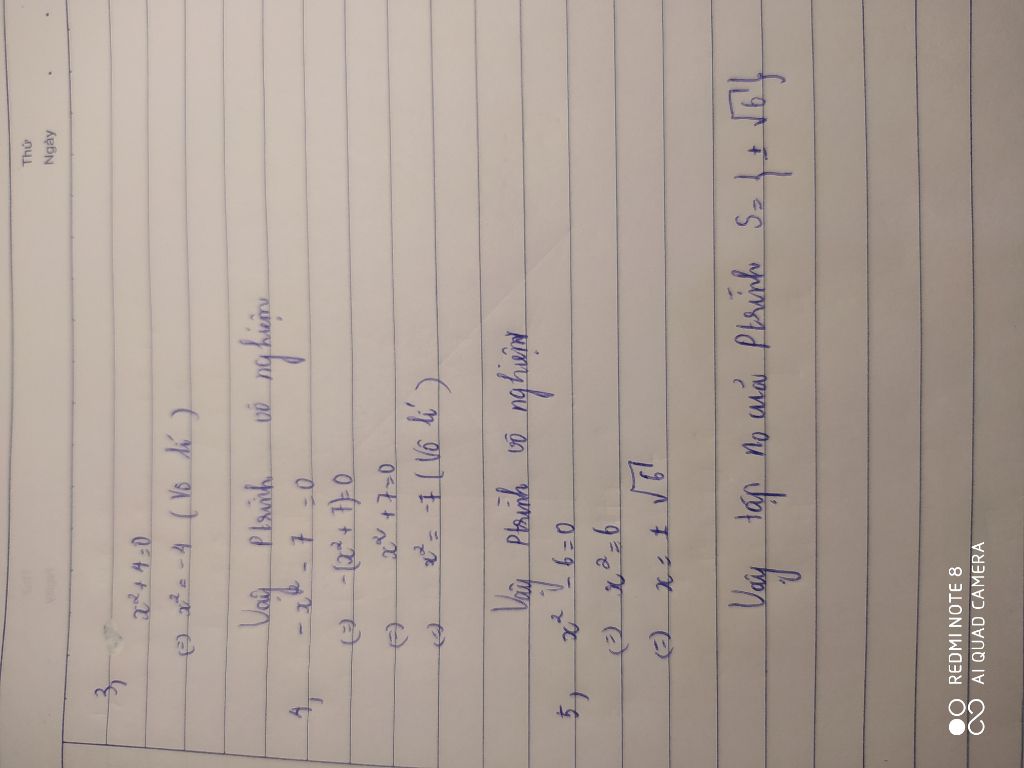 Thứ
Ngày
3,
x² + 4 = 0
(=) x² = -4 ( Vô lí )
Vậy ptrình vô nghiệm
4, - x² - 7 = 0
(=) -(x² + 7) = 0
(=) x² + 7 = 0
(=) x² = -7 ( Vô lí )
Vậy ptrình vô nghiệm
5, x² - 6 = 0
(=) x² = 6
(=) x = ± √6
Vậy tập no của ptrình S = { ± √6 }
REDMI NOTE 8
AI QUAD CAMERA